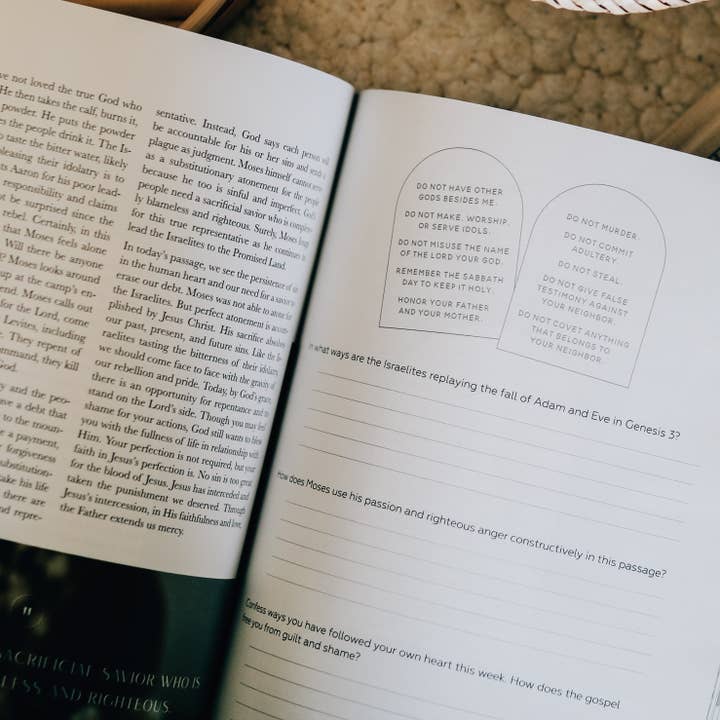 ve not loved the true God who
He then takes the calf, burns it,
powder. He puts the powder
es the people drink it. The Is-
o taste the bitter water, likely
pleasing their idolatry is to
ts Aaron for his poor lead-
responsibility and claims
ot be surprised since the
rebel. Certainly, in this
that Moses feels alone
Will there be anyone
? Moses looks around
up at the camp's en-
end. Moses calls out
for the Lord, come
Levites, including
. They repent of
ommand, they kill
God.
y and the peo-
ve a debt that
to the moun-
e a payment,
forgiveness
substitution-
ake his life
there are
nd repre-
sentative. Instead, God says each person will
be accountable for his or her sins and sends a
plague as judgment. Moses himself cannot serve
as a substitutionary atonement for the people
because he too is sinful and imperfect. God's
people need a sacrificial savior who is complete-
ly blameless and righteous. Surely, Moses longs
for this true representative as he continues to
lead the Israelites to the Promised Land.
In today's passage, we see the persistence of sin
in the human heart and our need for a savior to
erase our debt. Moses was not able to atone for
the Israelites. But perfect atonement is accom-
plished by Jesus Christ. His sacrifice absolves
our past, present, and future sins. Like the Is-
raelites tasting the bitterness of their idolatry,
we should come face to face with the gravity of
our rebellion and pride. Today, by God's grace,
there is an opportunity for repentance and to
stand on the Lord's side. Though you may feel
shame for your actions, God still wants to bless
you with the fullness of life in relationship with
Him. Your perfection is not required, but your
faith in Jesus's perfection is. No sin is too great
for the blood of Jesus. Jesus has interceded and
taken the punishment we deserved. Through
Jesus's intercession, in His faithfulness and love,
the Father extends us mercy.
"
SACRIFICIAL SAVIOR WHO IS
LESS AND RIGHTEOUS.
DO NOT HAVE OTHER
GODS BESIDES ME.
DO NOT MAKE, WORSHIP,
OR SERVE IDOLS.
DO NOT MISUSE THE NAME
OF THE LORD YOUR GOD.
REMEMBER THE SABBATH
DAY TO KEEP IT HOLY.
HONOR YOUR FATHER
AND YOUR MOTHER.
DO NOT MURDER.
DO NOT COMMIT
ADULTERY.
DO NOT STEAL.
DO NOT GIVE FALSE
TESTIMONY AGAINST
YOUR NEIGHBOR.
DO NOT COVET ANYTHING
THAT BELONGS TO
YOUR NEIGHBOR.
In what ways are the Israelites replaying the fall of Adam and Eve in Genesis 3?
How does Moses use his passion and righteous anger constructively in this passage?
Confess ways you have followed your own heart this week. How does the gospel
free you from guilt and shame?